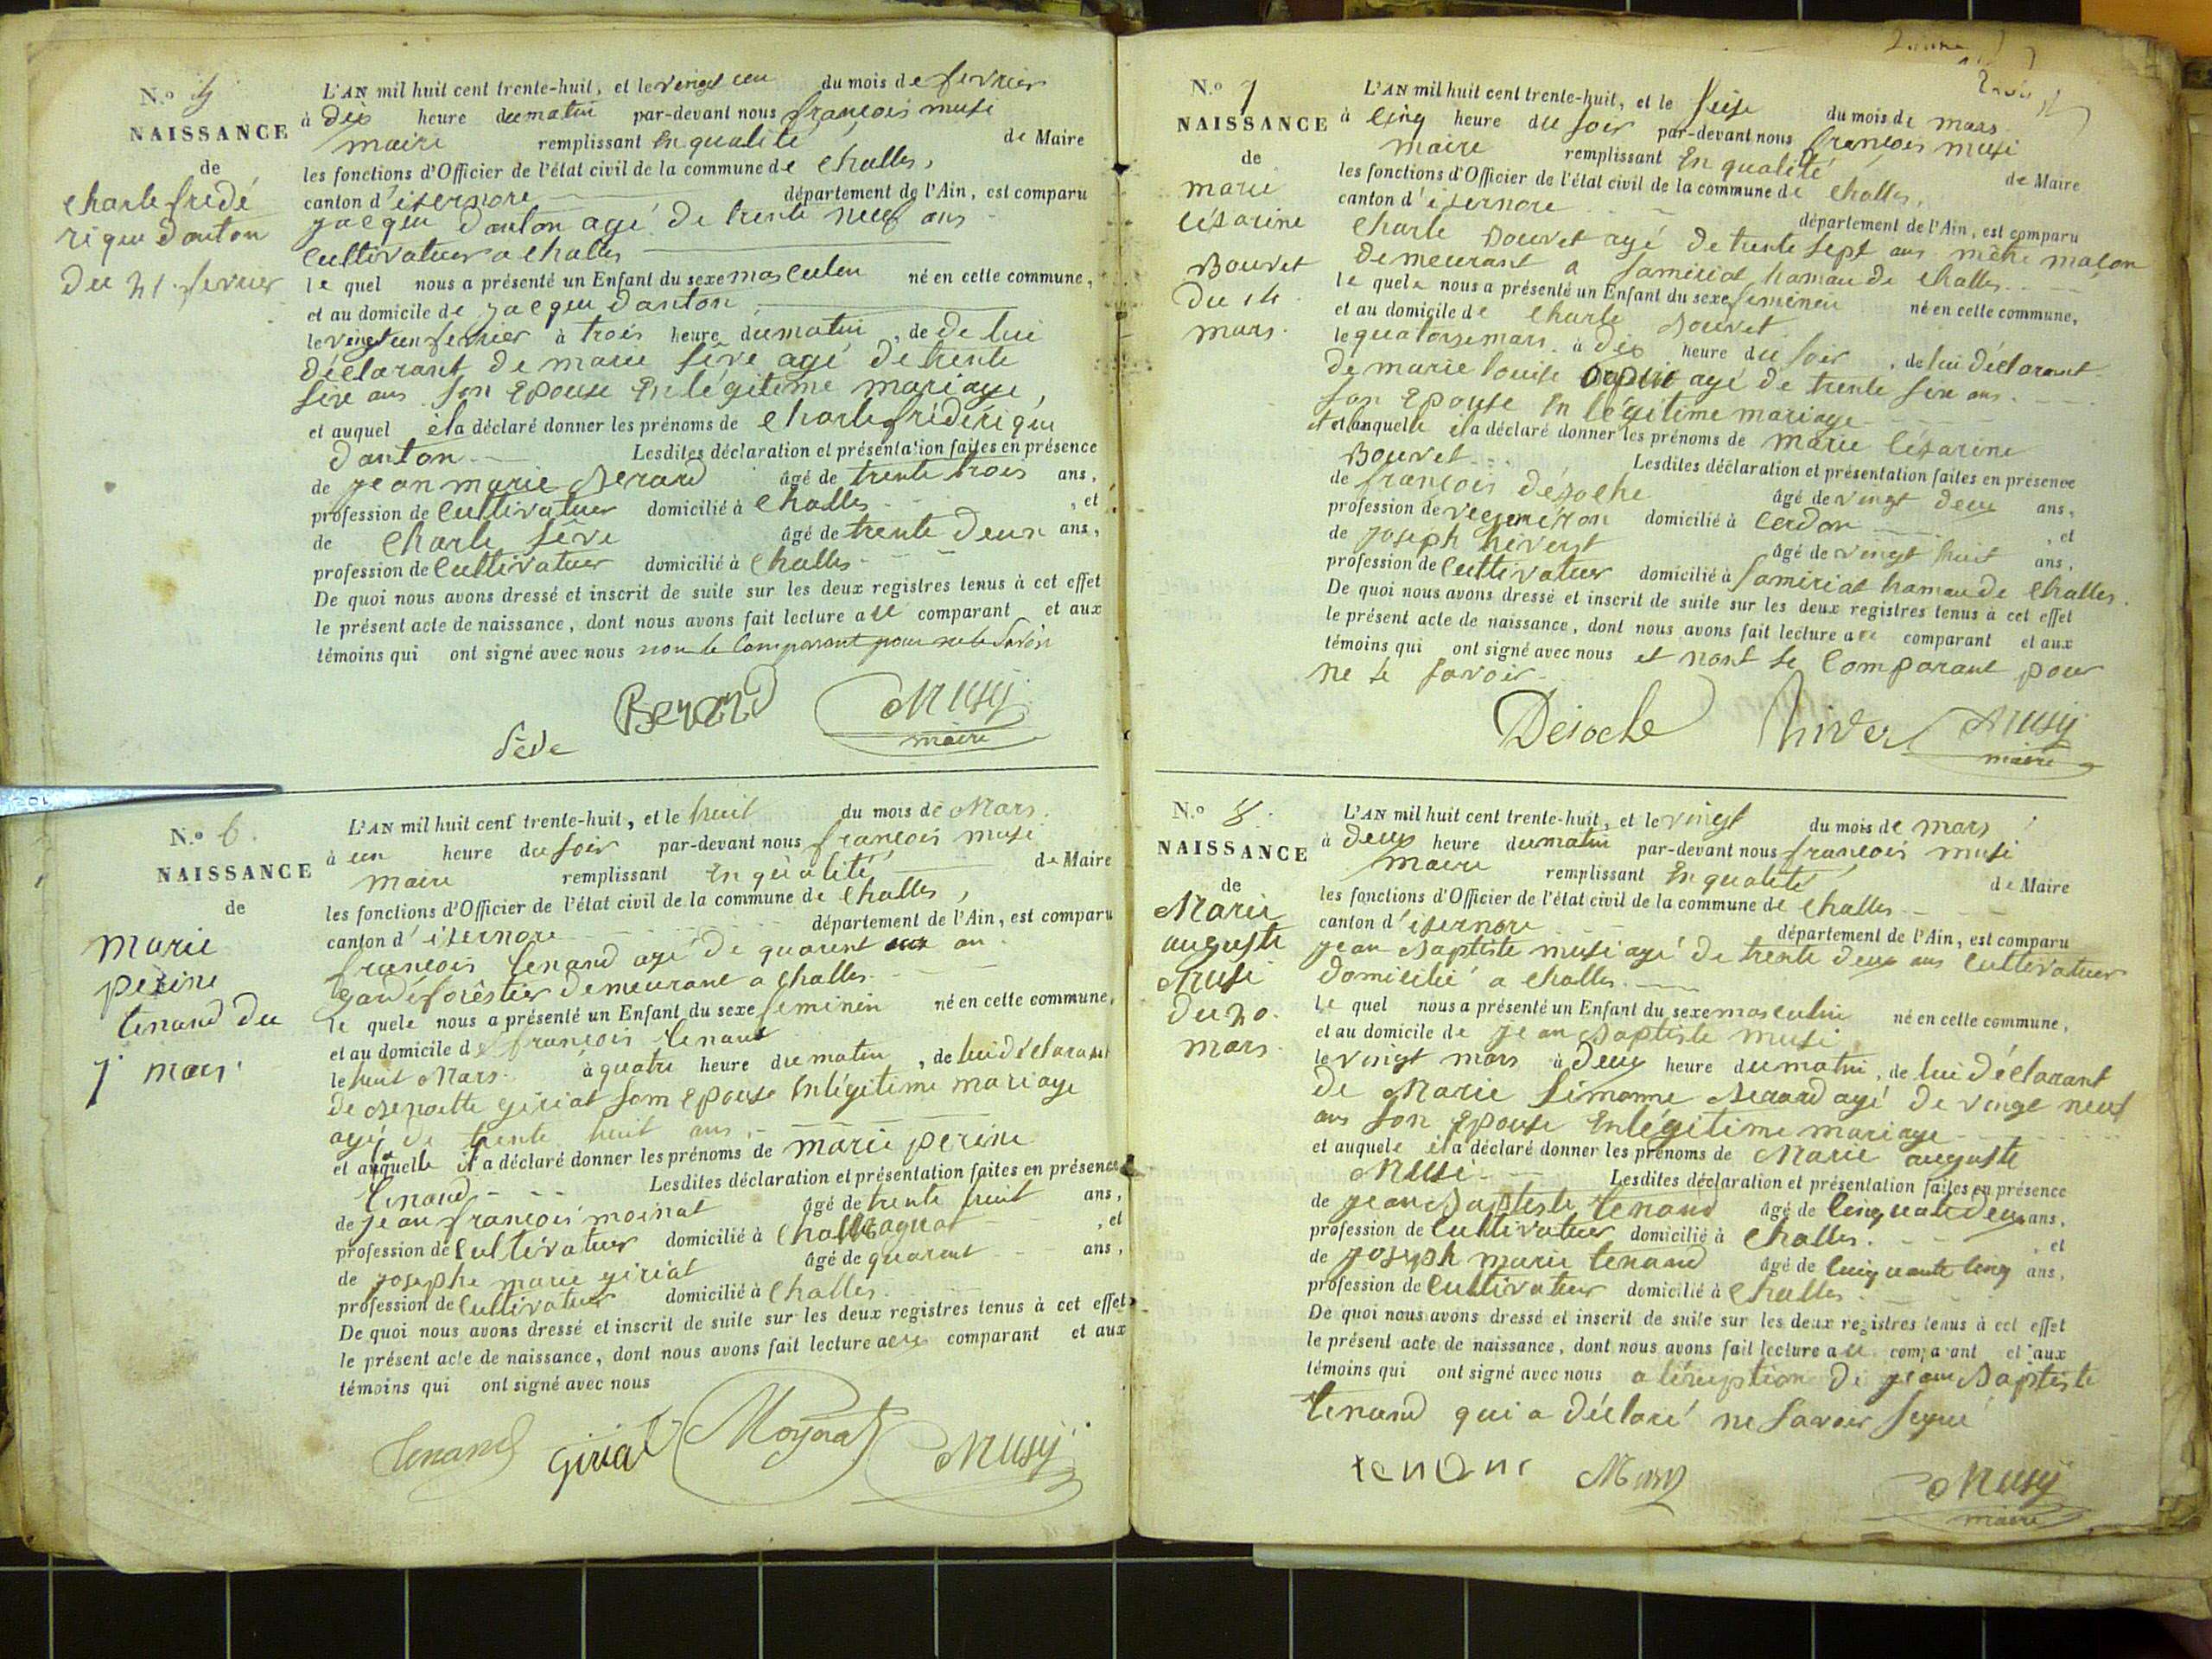 N.o 5
NAISSANCE
de
charle frédé
rique danton
du 21 fevrier
L'AN mil huit cent trente-huit, et le vingt un du mois de fevrier
à dix heure du matin par-devant nous françois musi
maire remplissant En qualité de Maire
les fonctions d'Officier de l'état civil de la commune de challes,
canton d'isernore département de l'Ain, est comparu
jacque danton agé de trente neuf ans
cultivateur a challes
le quel nous a présenté un Enfant du sexe masculin né en cette commune,
et au domicile de jacque danton
le vingt un fevrier à trois heure du matin, de de lui
déclarant de marie sêve agé de trente
sixe ans son Epouse En légitime mariage,
et auquel il a déclaré donner les prénoms de charle frédérique
danton Lesdites déclaration et présentation faites en présence
de jean marie Berard âgé de trente trois ans,
profession de cultivateur domicilié à challes, et
de charle sêve âgé de trente deux ans,
profession de cultivateur domicilié à challes
De quoi nous avons dressé et inscrit de suite sur les deux registres tenus à cet effet
le présent acte de naissance, dont nous avons fait lecture au comparant et aux
témoins qui ont signé avec nous non le comparant pour ne le savoir
Berard Musy
Sêve maire
N.o 6
NAISSANCE
de
marie
perine
tenand du
7 mars
L'AN mil huit cent trente-huit, et le huit du mois de Mars
à un heure du soir par-devant nous françois musi
maire remplissant En qualité de Maire
les fonctions d'Officier de l'état civil de la commune de challes,
canton d'isernore département de l'Ain, est comparu
françois tenand agé de quarent an
garde forêstier demeurant a challes
le quele nous a présenté un Enfant du sexe feminin né en cette commune,
et au domicile de françois tenand
le huit Mars à quatre heure du matin, de lui déclarant
de Benoitte giriat som epouse En légitime mariage
agé de trente huit ans
et auquelle il a déclaré donner les prénoms de marie perine
tenand Lesdites déclaration et présentation faites en présence
de jean françois moinat âgé de trente huit ans,
profession de cultivateur domicilié à , et
de josephe marie giriat âgé de quarent ans,
profession de cultivateur domicilié à challes
De quoi nous avons dressé et inscrit de suite sur les deux registres tenus à cet effet
le présent acte de naissance, dont nous avons fait lecture au comparant et aux
témoins qui ont signé avec nous
Tenand Giriat Moynat Musy
N.o 7
NAISSANCE
de
marie
césarine
Bouvet
du 14
mars
L'AN mil huit cent trente-huit, et le seise du mois de mars
à cinq heure du soir par-devant nous françois musi
maire remplissant En qualité de Maire
les fonctions d'Officier de l'état civil de la commune de challes,
canton d'isernore département de l'Ain, est comparu
charle Bouvet agé de trente sept ans mêtre maçon
demeurant a samiriat hamau de challes
le quele nous a présenté un Enfant du sexe femineu né en cette commune,
et au domicile de charle Bouvet
le quatorse mars à dix heure du soir, de lui déclarant
de marie louise agé de trente sixe ans
son Epouse En légitime mariage
et et laquelle il a déclaré donner les prénoms de marie césarine
Bouvet Lesdites déclaration et présentation faites en présence
de françois désoche âgé de vingt deux ans,
profession de vegneron domicilié à cerdon, et
de joseph hivert âgé de vingt huit ans,
profession de cultivateur domicilié à samiriat hamau de challes.
De quoi nous avons dressé et inscrit de suite sur les deux registres tenus à cet effet
le présent acte de naissance, dont nous avons fait lecture au comparant et aux
témoins qui ont signé avec nous et nont le comparant pour
ne le savoir
Désoche hiver Musy
maire
N.o 8
NAISSANCE
de
Marie
auguste
Musi
du 20
mars
L'AN mil huit cent trente-huit, et le vingt du mois de mars
à deux heure du matin par-devant nous françois musi
maire remplissant En qualité de Maire
les fonctions d'Officier de l'état civil de la commune de challes
canton d'isernore département de l'Ain, est comparu
jean Baptiste musi agé de trente deux ans cultivateur
domicilié a challes
le quel nous a présenté un Enfant du sexe masculin né en cette commune,
et au domicile de jean Baptiste musi
le vingt mars à deux heure du matin, de lui déclarant
de Marie Simonne Berard agé de vingt neuf
ans son Epouse En légitime mariage
et auquele il a déclaré donner les prénoms de Marie auguste
Musi Lesdites déclaration et présentation faites en présence
de jean Baptiste tenand âgé de cinquante deux ans,
profession de cultivateur domicilié à challes, et
de joseph marie tenand âgé de cinquante cinq ans,
profession de cultivateur domicilié à challes
De quoi nous avons dressé et inscrit de suite sur les deux registres tenus à cet effet
le présent acte de naissance, dont nous avons fait lecture au comparant et aux
témoins qui ont signé avec nous a léxeption de jean Baptiste
tenand qui a déclaré ne savoir signé
tenane Musy Musy
maire